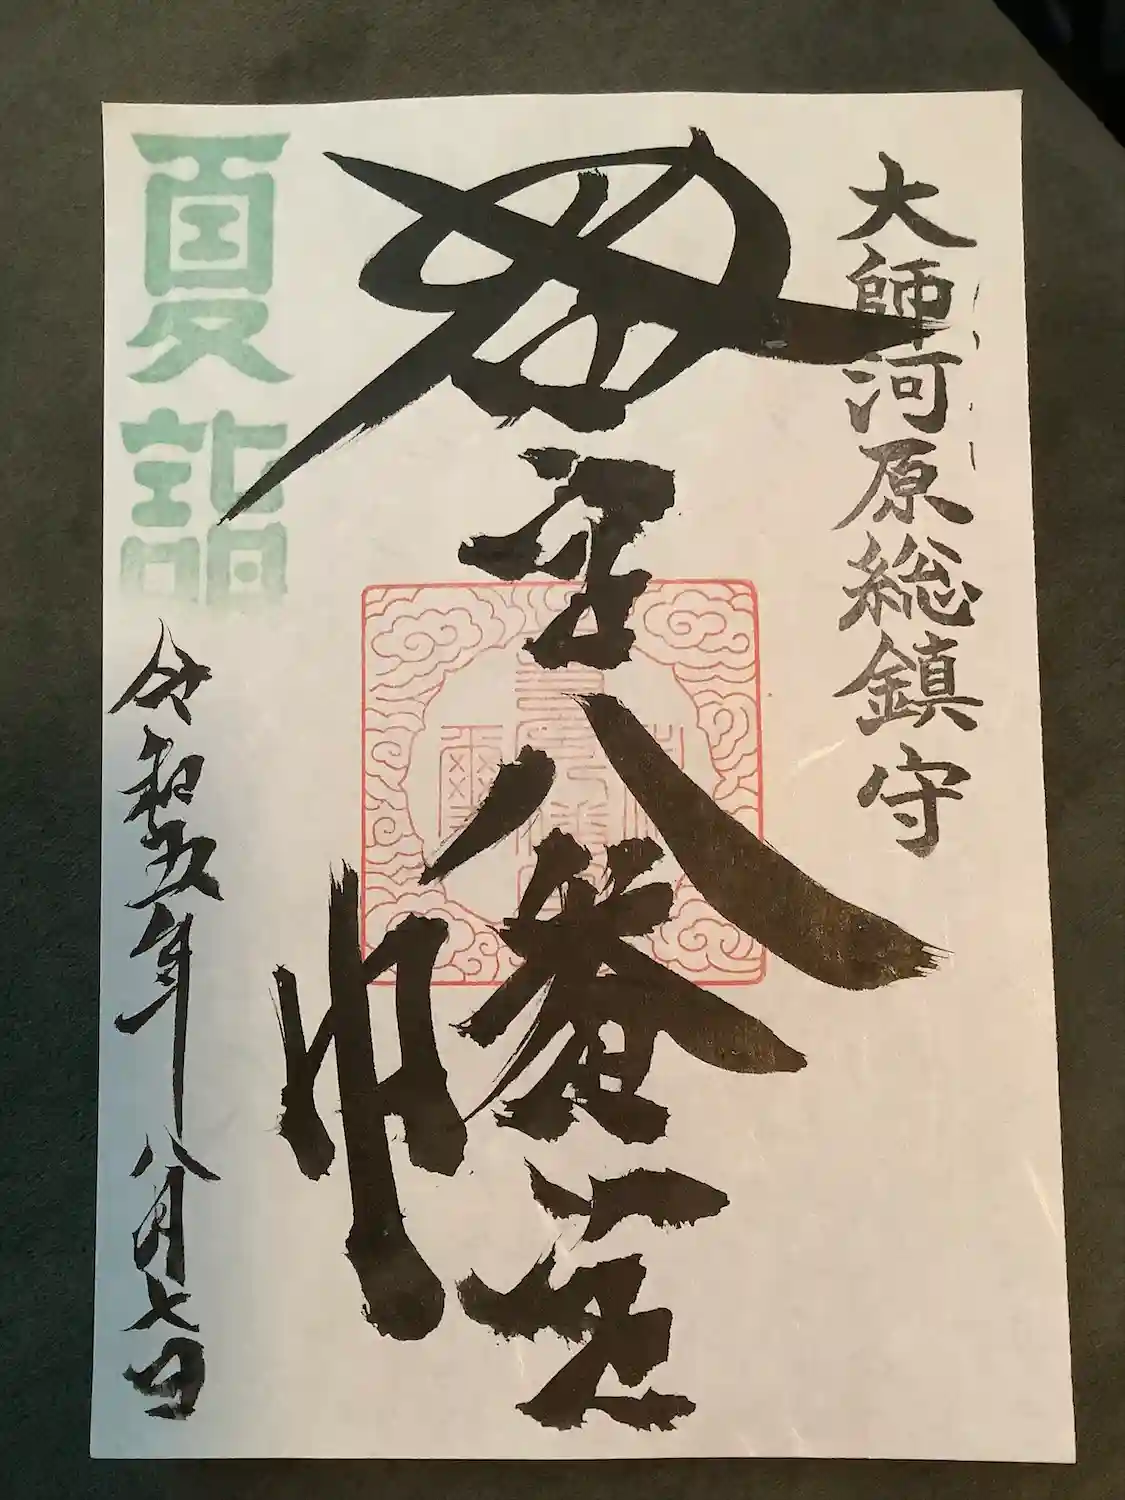 大師河原総鎮守
若宮八幡宮
夏詣
令和五年八月七日